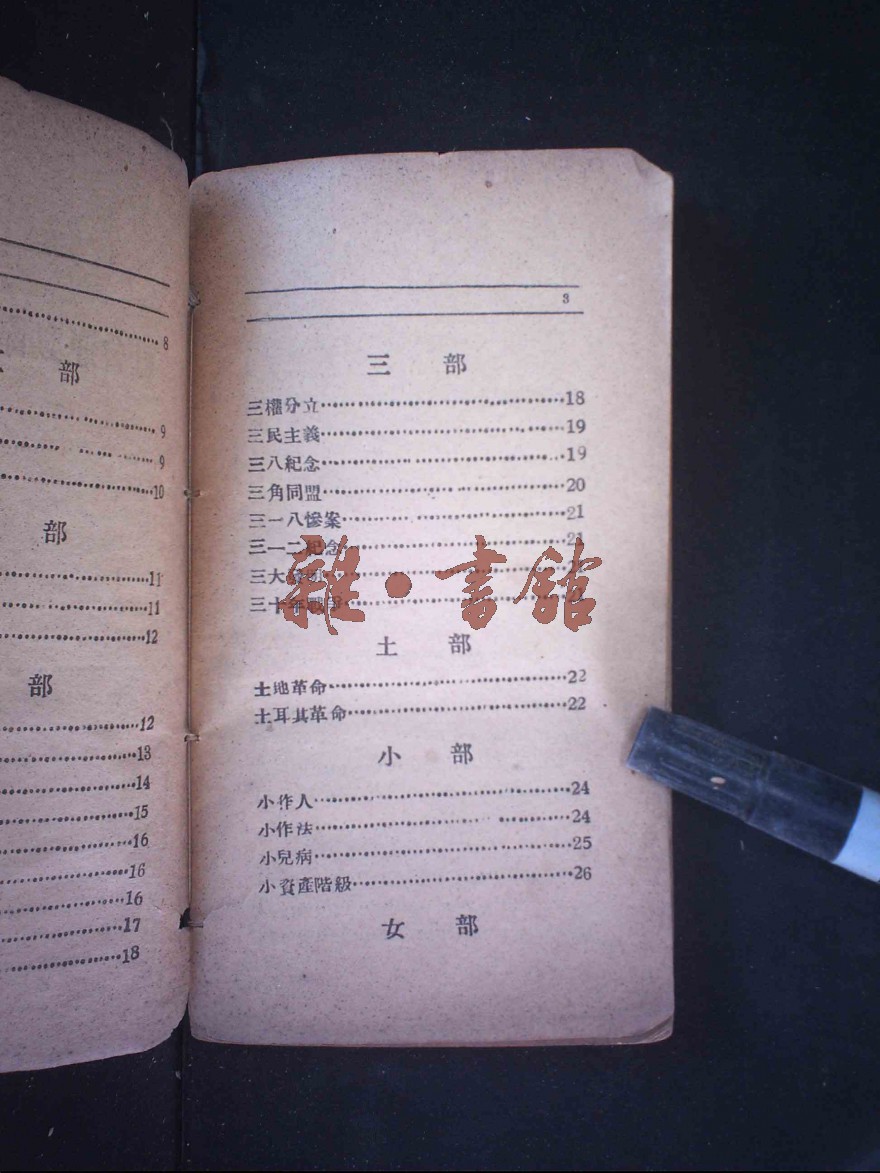 8
部
9
9
10
部
11
11
12
部
12
13
14
15
16
16
16
17
18
3
三 部
三權分立 18
三民主義 19
三八紀念 19
三角同盟 20
三一八慘案 21
三一二紀念 21
三大
三十年戰爭
雜·書館
土 部
土地革命 22
土耳其革命 22
小 部
小作人 24
小作法 24
小兒病 25
小資產階級 26
女 部